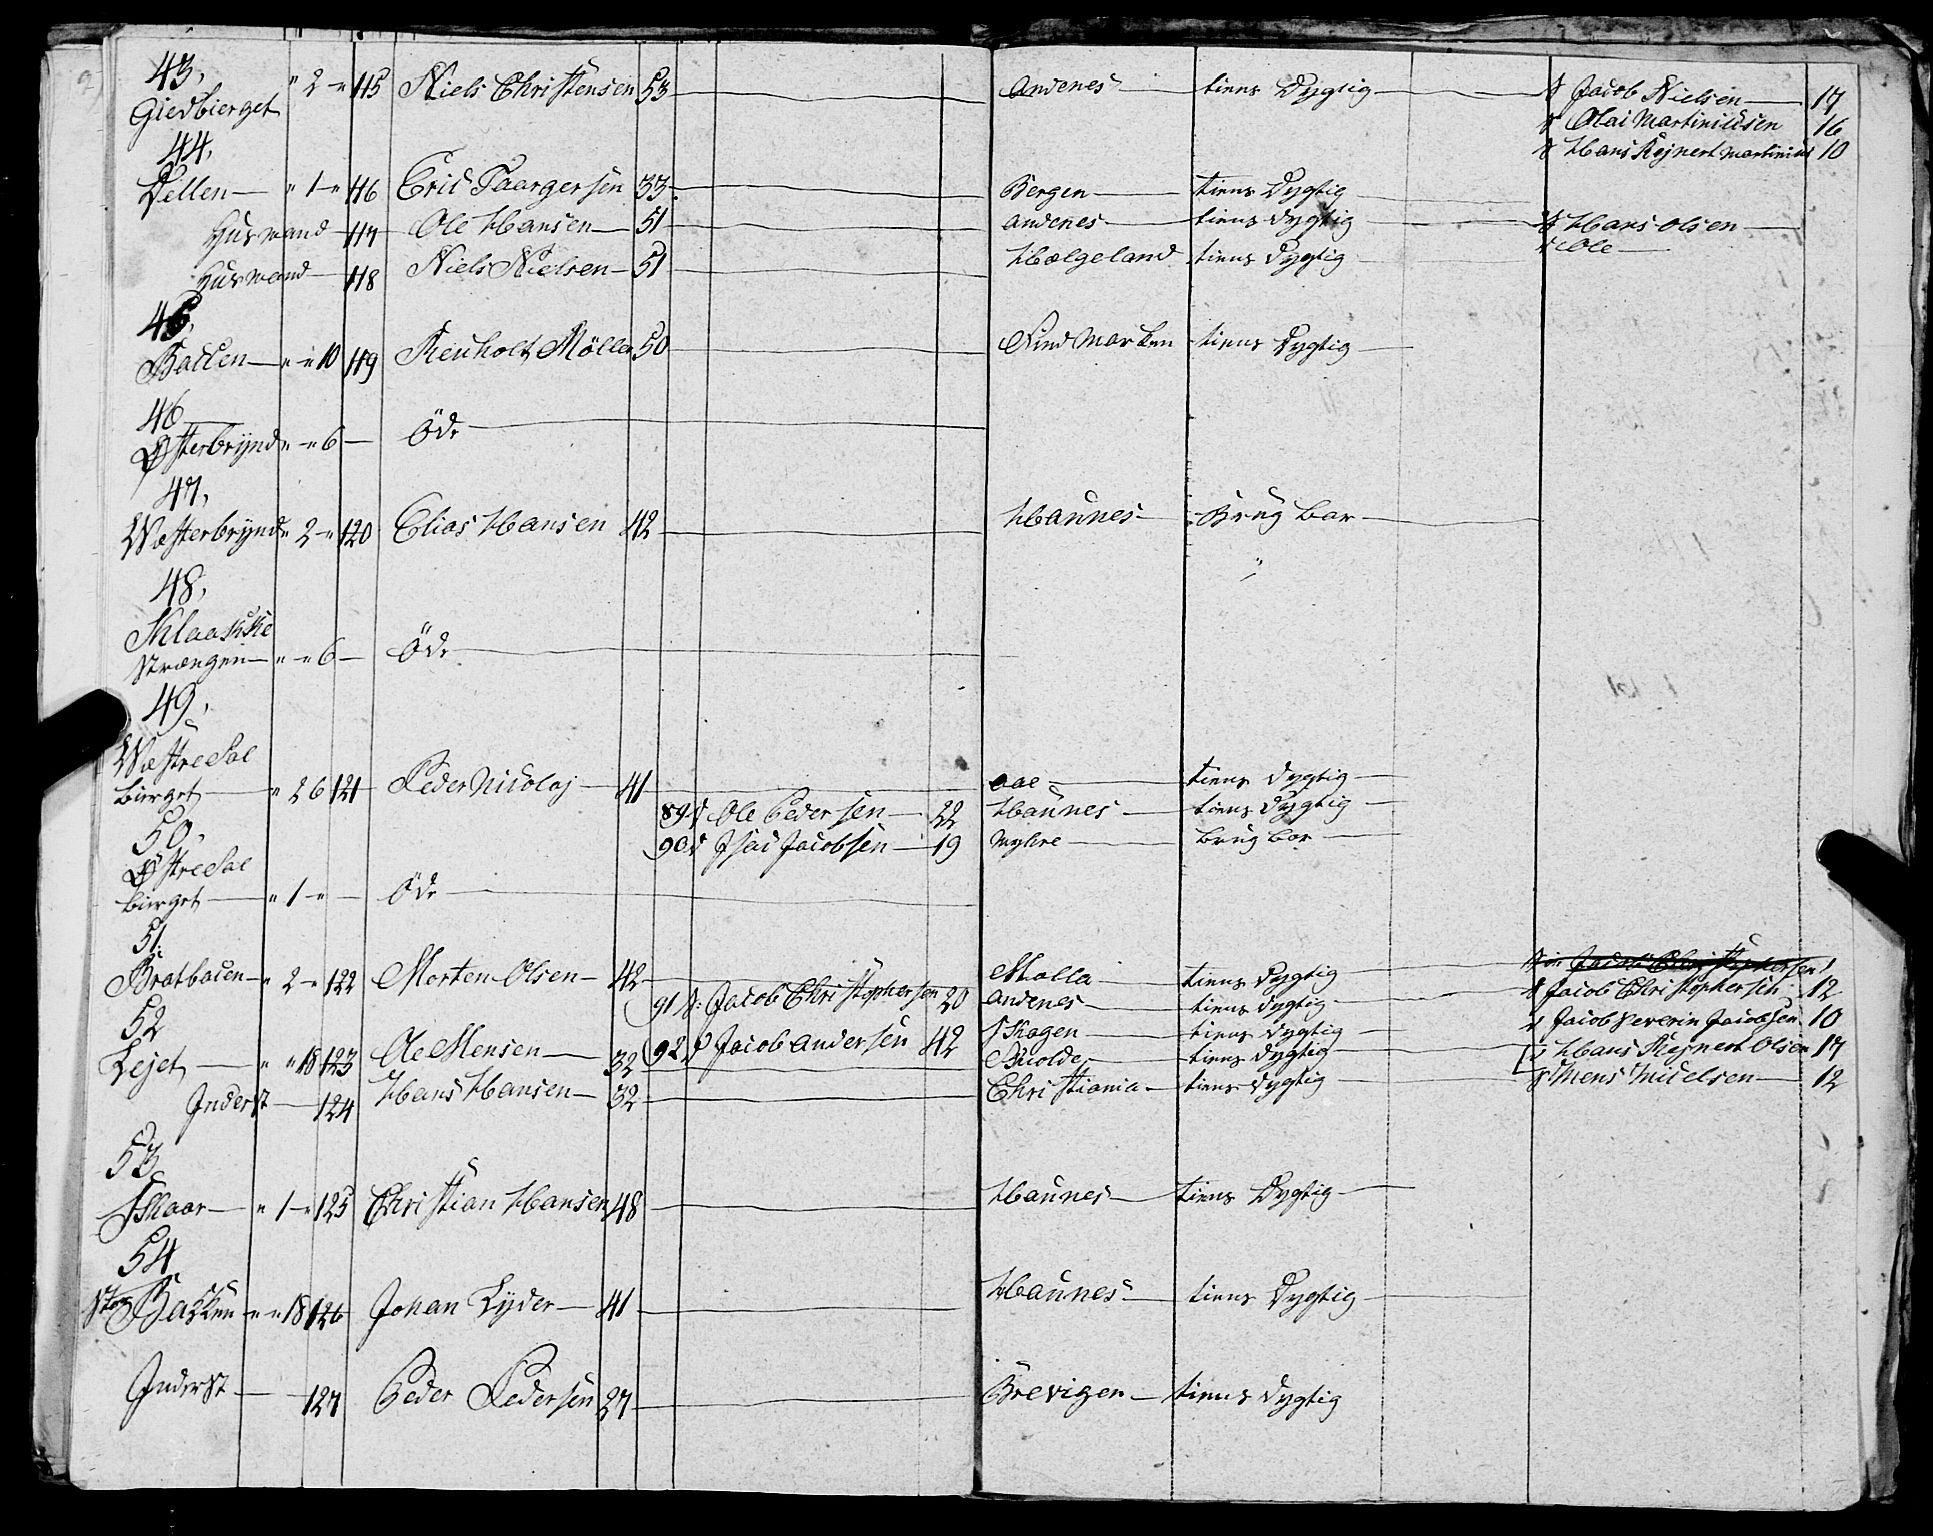 43,
Giedbierget " 2 " 115 Niels Christensen 53 Andenes tiens Dygtig S Jacob Nielsen 17
S Olai Martiniusen 16
44, S Hans Rejnert Martinius 10
Vellen " 1 " 116 Eric Taargersen 33 Bergen tiens Dygtig
Huusmand 117 Ole Hansen 51 Andenes tiens Dygtig S Hans Olsen
S Ole
Huusmand 118 Niels Nielsen 51 Hælgeland tiens Dygtig
45,
Backen " " 10 119 Reinholt Möller 50 Findmarken tiens Dygtig
46
Østerbrynd " " 6 Öde
47,
Wæsterbrynd " 2 " 120 Elias Hansen 42 Haunes Brugbar
48,
Klaakke
Strængen " " 6 Öde
49,
Wæstre Sae
bierget " 2 6 121 Peder Nicolaj 41 Aae tiens Dygtig
89 S Ole Pedersen 22 Haunes tiens Dygtig
50, 90 S Isac Jacobsen 19 Myhre brugbar
Østre Sae
bierget " 1 " Öde
51.
Bratbacen " 2 " 122 Morten Olsen 42 Malla tiens Dygtig S Jacob Christophersen
91 S: Jacob Christophersen 20 Andenes tiens Dygtig S Jacob Christophersen 12
52 92 P Jacob Andersen 42 Skagen tiens Dygtig S Jacob Severin Jacobsen 10
Lejet " " 18 123 Ole Mensen 32 Molde tiens Dygtig S Hans Rejnert Olsen 17
Inderst 124 Hans Hansen 32 Christiania tiens Dygtig S Mens Micelsen 12
53
Skaar " 1 " 125 Christian Hansen 48 Haunes tiens Dygtig
54
Stor Backen " " 18 126 Johan Lyder 41 Haunes tiens Dygtig
Inderst 127 Peder Pedersen 27 Brevigen tiens Dygtig